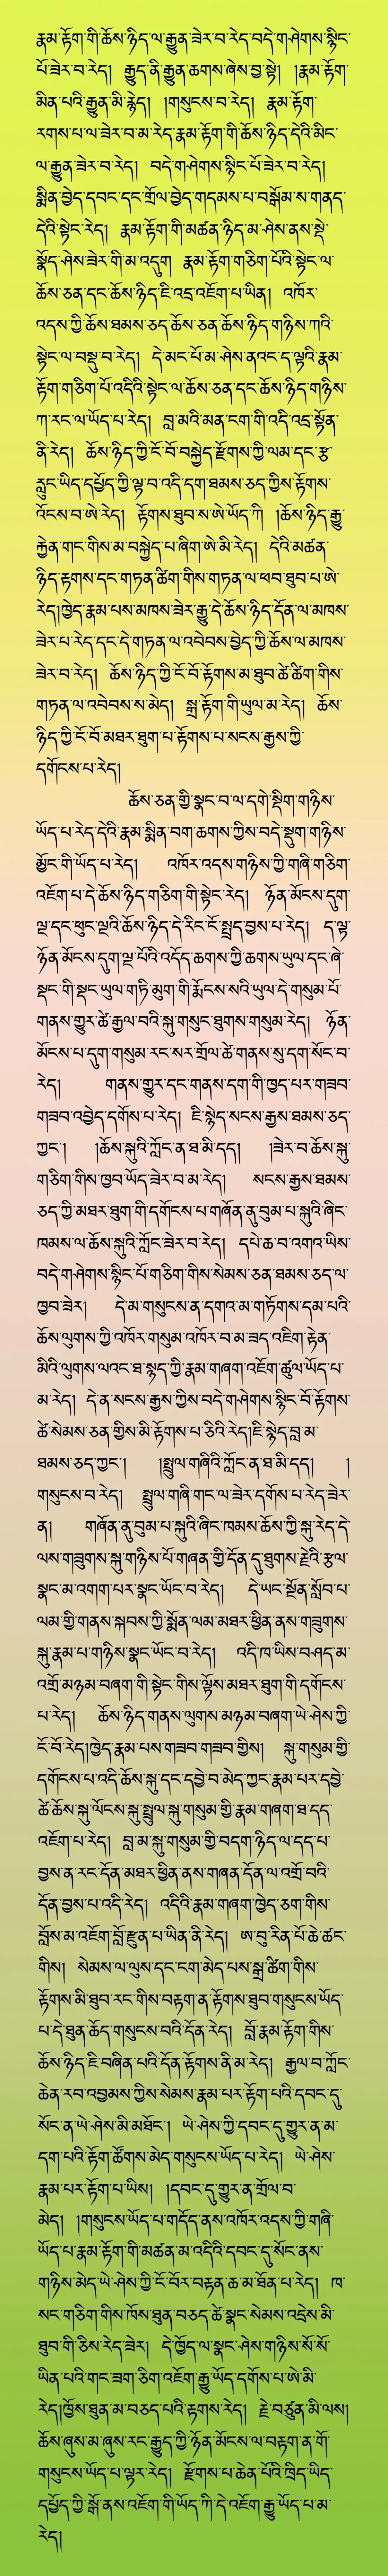 རྣམ་རྟོག་གི་ཆོས་ཉིད་ལ་རྒྱུན་ཟེར་བ་རེད་བདེ་གཤེགས་སྙིང་
པོ་ཟེར་བ་རེད། རྒྱུད་ནི་རྒྱུན་ཆགས་ཞེས་བྱ་སྟེ། །རྣམ་རྟོག་
མིན་པའི་རྒྱུན་མི་རྙེད། །གསུངས་བ་རེད། རྣམ་རྟོག་
རགས་པ་ལ་ཟེར་བ་མ་རེད་རྣམ་རྟོག་གི་ཆོས་ཉིད་དེའི་མིང་
ལ་རྒྱུན་ཟེར་བ་རེད། བདེ་གཤེགས་སྙིང་པོ་ཟེར་བ་རེད།
སྨིན་བྱེད་དབང་དང་གྲོལ་བྱེད་གདམས་པ་བསྒོམ་ས་གནད་
དེའི་སྟེང་རེད། རྣམ་རྟོག་གི་མཚན་ཉིད་མ་ཤེས་ནས་སྡེ་
སྣོད་ཤེས་ཟེར་གི་མ་འདུག རྣམ་རྟོག་གཅིག་པོའི་སྟེང་ལ་
ཆོས་ཅན་དང་ཆོས་ཉིད་ཇི་འདྲ་འཇོག་པ་ཡིན། འཁོར་
འདས་ཀྱི་ཆོས་ཐམས་ཅད་ཆོས་ཅན་ཆོས་ཉིད་གཉིས་ཀའི་
སྟེང་ལ་བསྡུ་བ་རེད། དེ་མང་པོ་མ་ཤེས་ནའང་ད་ལྟའི་རྣམ་
རྟོག་གཅིག་པོ་འདིའི་སྟེང་ལ་ཆོས་ཅན་དང་ཆོས་ཉིད་གཉིས་
ཀ་རང་ལ་ཡོད་པ་རེད། བླ་མའི་མན་ངག་གི་འདི་འདྲ་སྟོན་
ནི་རེད། ཆོས་ཉིད་ཀྱི་ངོ་བོ་བསྐྱེད་རྫོགས་ཀྱི་ལམ་དང་རྩ་
རླུང་ཡིད་དཔྱོད་ཀྱི་ལྟ་བ་འདི་དག་ཐམས་ཅད་ཀྱིས་རྟོགས་
འོངས་བ་ཨེ་རེད། རྟོགས་ཐུབ་ས་ཨེ་ཡོད་ཀི །ཆོས་ཉིད་རྒྱུ་
རྐྱེན་གང་གིས་མ་བསྐྱེད་པ་ཞིག་ཨེ་མི་རེད། དེའི་མཚན་
ཉིད་རྟགས་དང་གཏན་ཚིག་གིས་གཏན་ལ་ཕབ་ཐུབ་པ་ཨེ་
རེད།ཁྱེད་རྣམ་པས་མཁས་ཟེར་རྒྱུ་དེ་ཆོས་ཉིད་དོན་ལ་མཁས་
ཟེར་པ་རེད་དང་དེ་གཏན་ལ་འབེབས་བྱེད་ཀྱི་ཆོས་ལ་མཁས་
ཟེར་བ་རེད། ཆོས་ཉིད་ཀྱི་ངོ་བོ་རྟོགས་མ་ཐུབ་ཚེ་ཚིག་གིས་
གཏན་ལ་འབེབས་ས་མེད། སྒྲ་རྟོག་གི་ཡུལ་མ་རེད། ཆོས་
ཉིད་ཀྱི་ངོ་བོ་མཐར་ཐུག་པ་རྟོགས་པ་སངས་རྒྱས་ཀྱི་
དགོངས་པ་རེད།
ཆོས་ཅན་གྱི་སྣང་བ་ལ་དགེ་སྡིག་གཉིས་
ཡོད་པ་རེད་དེའི་རྣམ་སྨིན་བག་ཆགས་ཀྱིས་བདེ་སྡུག་གཉིས་
མྱོང་གི་ཡོད་པ་རེད། འཁོར་འདས་གཉིས་ཀྱི་གཞི་གཅིག་
འཇོག་པ་དེ་ཆོས་ཉིད་གཅིག་གི་སྟེང་རེད། ཉོན་མོངས་དུག་
ལྔ་དང་ཕུང་ལྔའི་ཆོས་ཉིད་དེ་རིང་ངོ་སྤྲད་བྱས་པ་རེད། ད་ལྟ་
ཉོན་མོངས་དུག་ལྔ་པོའི་འདོད་ཆགས་ཀྱི་ཆགས་ཡུལ་དང་ཞེ་
སྡང་གི་སྡང་ཡུལ་གཏི་མུག་གི་རྨོངས་སའི་ཡུལ་དེ་གསུམ་པོ་
གནས་གྱུར་ཚེ་རྒྱལ་བའི་སྐུ་གསུང་ཐུགས་གསུམ་རེད། ཉོན་
མོངས་པ་དུག་གསུམ་རང་སར་གྲོལ་ཚེ་གནས་སུ་དག་སོང་བ་
རེད། གནས་གྱུར་དང་གནས་དག་གི་ཁྱད་པར་གཟབ་
གཟབ་འབྱེད་དགོས་པ་རེད། ཇི་སྙེད་སངས་རྒྱས་ཐམས་ཅད་
ཀྱང་། །ཆོས་སྐུའི་ཀློང་ན་ཐ་མི་དད། །ཟེར་བ་ཆོས་སྐུ་
གཅིག་གིས་ཁྱབ་ཡོད་ཟེར་བ་མ་རེད། སངས་རྒྱས་ཐམས་
ཅད་ཀྱི་མཐར་ཐུག་གི་དགོངས་པ་གཞོན་ནུ་བུམ་པ་སྐུའི་ཞིང་
ཁམས་ལ་ཆོས་སྐུའི་ཀློང་ཟེར་བ་རེད། དཔེ་ཆ་བ་འགའ་ཡིས་
བདེ་གཤེགས་སྙིང་པོ་གཅིག་གིས་སེམས་ཅན་ཐམས་ཅད་ལ་
ཁྱབ་ཟེར། དེ་མ་གསུངས་ན་དགའ་མ་གཏོགས་དམ་པའི་
ཆོས་ལུགས་ཀྱི་འཁོར་གསུམ་འཁོར་བ་མ་ཟད་འཇིག་རྟེན་
མིའི་ལུགས་ལའང་ཐ་སྙད་ཀྱི་རྣམ་གཞག་འཇོག་ཚུལ་ཡོད་པ་
མ་རེད། དེ་ན་སངས་རྒྱས་ཀྱིས་བདེ་གཤེགས་སྙིང་པོ་རྟོགས་
ཚེ་སེམས་ཅན་གྱིས་མི་རྟོགས་པ་ཅིའི་རེད།ཇི་སྙེད་བླ་མ་
ཐམས་ཅད་ཀྱང་། །སྤྲུལ་གཞིའི་ཀློང་ན་ཐ་མི་དད། །
གསུངས་བ་རེད། སྤྲུལ་གཞི་གང་ལ་ཟེར་དགོས་པ་རེད་ཟེར་
ན། གཞོན་ནུ་བུམ་པ་སྐུའི་ཞིང་ཁམས་ཆོས་ཀྱི་སྐུ་རེད་དེ་
ལས་གཟུགས་སྐུ་གཉིས་པོ་གཞན་གྱི་དོན་དུ་ཐུགས་རྗེའི་རྩལ་
སྣང་མ་འགག་པར་སྣང་ཡོང་བ་རེད། དེ་ཡང་སྔོན་སློབ་པ་
ལམ་གྱི་གནས་སྐབས་ཀྱི་སྨོན་ལམ་མཐར་ཕྱིན་ནས་གཟུགས་
སྐུ་རྣམ་པ་གཉིས་སྣང་ཡོང་བ་རེད། འདི་ཁ་ཡིས་བཤད་མ་
འགྲོ་མཉམ་བཞག་གི་སྟེང་གིས་ལྟོས་མཐར་ཐུག་གི་དགོངས་
པ་རེད། ཆོས་ཉིད་གནས་ལུགས་མཉམ་བཞག་ཡེ་ཤེས་ཀྱི་
ངོ་བོ་རེད།ཁྱེད་རྣམ་པས་གཟབ་གཟབ་གྱིས། སྐུ་གསུམ་གྱི་
དགོངས་པ་འདི་ཆོས་སྐུ་དང་དབྱེ་བ་མེད་ཀྱང་རྣམ་པར་དབྱེ་
ཚེ་ཆོས་སྐུ་ལོངས་སྐུ་སྤྲུལ་སྐུ་གསུམ་གྱི་རྣམ་གཞག་ཐ་དད་
འཇོག་པ་རེད། བླ་མ་སྐུ་གསུམ་གྱི་བདག་ཉིད་ལ་དད་པ་
བྱས་ན་རང་དོན་མཐར་ཕྱིན་ནས་གཞན་དོན་ལ་འགྲོ་བའི་
དོན་བྱས་པ་འདི་རེད། འདིའི་རྣམ་གཞག་ཁྱེད་ཅག་གིས་
བློས་མ་འཇོག་བློ་རྫུན་པ་ཡིན་ནི་རེད། ཨ་བུ་རིན་པོ་ཆེ་ཚང་
གིས། སེམས་ལ་ལུས་དང་ངག་མེད་པས་སྒྲ་ཚིག་གིས་
རྟོགས་མི་ཐུབ་རང་གིས་བརྟག་ན་རྟོགས་ཐུབ་གསུངས་ཡོད་
པ་དེ་ཐུན་ཚོད་གསུངས་བའི་དོན་རེད། བློ་རྣམ་རྟོག་གིས་
ཆོས་ཉིད་ཇི་བཞིན་པའི་དོན་རྟོགས་ནི་མ་རེད། རྒྱལ་བ་ཀློང་
ཆེན་རབ་འབྱམས་ཀྱིས་སེམས་རྣམ་པར་རྟོག་པའི་དབང་དུ་
སོང་ན་ཡེ་ཤེས་མི་མཐོང་། ཡེ་ཤེས་ཀྱི་དབང་དུ་གྱུར་ན་མ་
དག་པའི་རྟོག་ཚོགས་མེད་གསུངས་ཡོད་པ་རེད། ཡེ་ཤེས་
རྣམ་པར་རྟོག་པ་ཡིས། །དབང་དུ་གྱུར་ན་གྲོལ་བ་
མེད། །གསུངས་ཡོད་པ་གདོད་ནས་འཁོར་འདས་ཀྱི་གཞི་
ཡོད་པ་རྣམ་རྟོག་གི་མཚན་མ་འདིའི་དབང་དུ་སོང་ནས་
གཉིས་མེད་ཡེ་ཤེས་ཀྱི་ངོ་བོར་བརྟན་ཆ་མ་ཐོན་པ་རེད། ཁ་
སང་གཅིག་གིས་ཁོས་ཐུན་བཅད་ཚེ་སྣང་སེམས་འདྲེས་མི་
ཐུབ་གི་ཅིས་རེད་ཟེར། དེ་ཁྱོད་ལ་སྣང་ཤེས་གཉིས་སོ་སོ་
ཡིན་པའི་གང་ཟག་ཅིག་འཇོག་རྒྱུ་ཡོད་དགོས་པ་ཨེ་མི་
རེད།ཁྱོས་ཐུན་མ་བཅད་པའི་རྟགས་རེད། རྗེ་བཙུན་མི་ལས།
ཆོས་ཞུས་མ་ཞུས་རང་རྒྱུད་ཀྱི་ཉོན་མོངས་ལ་བརྟག་ན་གོ་
གསུངས་ཡོད་པ་ལྟར་རེད། རྫོགས་པ་ཆེན་པོའི་ཁྲིད་ཡིད་
དཔྱོད་ཀྱི་སྒོ་ནས་འཇོག་གི་ཡོད་ཀི་དེ་འཇོག་རྒྱུ་ཡོད་པ་མ་
རེད།